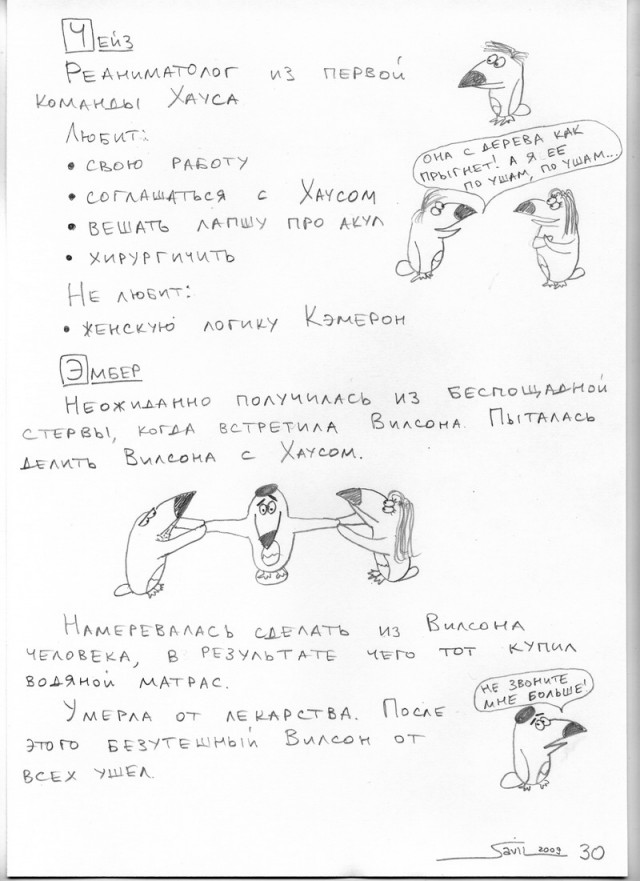 Чейз
Реаниматолог из первой
команды Хауса
Любит:
• свою работу
• соглашаться с Хаусом
• вешать лапшу про акул
• хирургичить
Не любит:
• женскую логику Кэмерон
Она с дерева как
прыгнет! А я её
по ушам, по ушам...
Эмбер
Неожиданно получилась из беспощадной
стервы, когда встретила Вилсона. Пыталась
делить Вилсона с Хаусом.
Намеревалась сделать из Вилсона
человека, в результате чего тот купил
водяной матрас.
Умерла от лекарства. После
этого безутешный Вилсон от
всех ушел.
Не звоните
мне больше!
Savil 2009 30